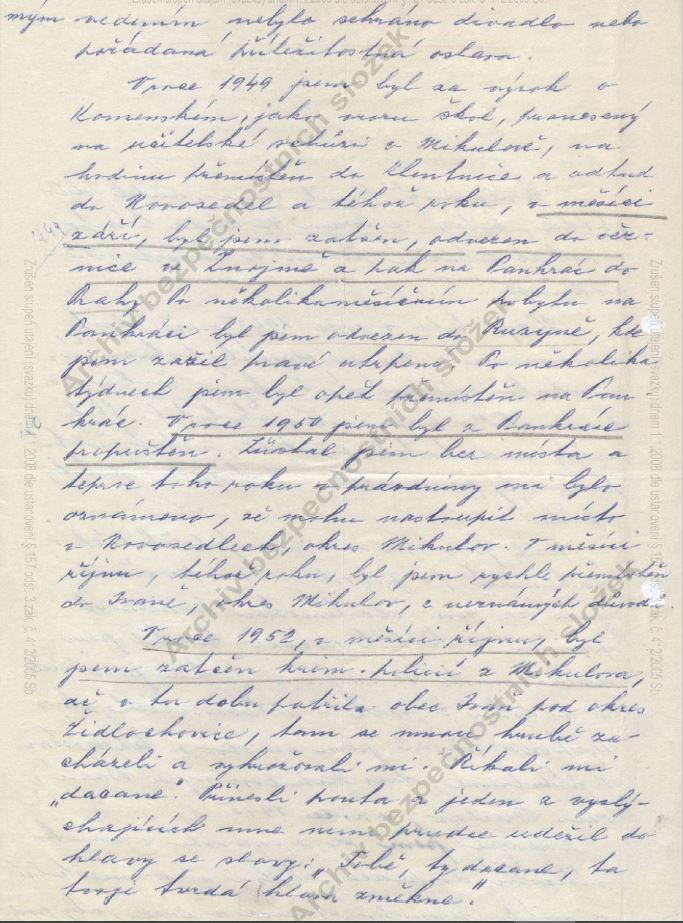 mým vedením nebylo sehráno divadlo nebo
pořádaná příležitostná oslava.
V roce 1949 jsem byl za výrok o
Komenském, jako vzoru škol, pronesený
na učitelské schůzi v Mikulově, na
hodinu přemístěn do Klentnice a odtud
do Novosedel a téhož roku, v měsíci
září, byl jsem zatčen, odvezen do věz-
nice ve Znojmě a pak na Pankrác do
Prahy. Po několikaměsíčním pobytu na
Pankráci byl jsem odvezen do Ruzyně, kde
jsem zažil pravé utrpení. Po několika
týdnech jsem byl opět přemístěn na Pan
krác. V roce 1950 jsem byl z Pankráce
propuštěn. Zůstal jsem bez místa a
teprve toho roku o prázdniny mi bylo
oznámeno, že mohu nastoupit místo
v Novosedlech, okres Mikulov. V měsíci
říjnu, téhož roku, byl jsem rychle přemístěn
do Ivaně, okres Mikulov, z neznámých důvodů.
V roce 1952, v měsíci říjnu, byl
jsem zatčen krim. policií z Mikulova,
ač v tu dobu patřila obec Ivaň pod okres
Židlochovice, tam se mnou hrubě za-
cházeli a vyhrožovali mi. Říkali mi
„dacane". Přinesli pouta a jeden z vyslý-
chajících mne jimi prudce udeřil do
hlavy se slovy: „Tobě, ty dacane, ta
tvoje tvrdá hlava změkne."
Archiv bezpečnostních složek
Archiv bezpečnostních složek
Archiv bezpečnostních složek